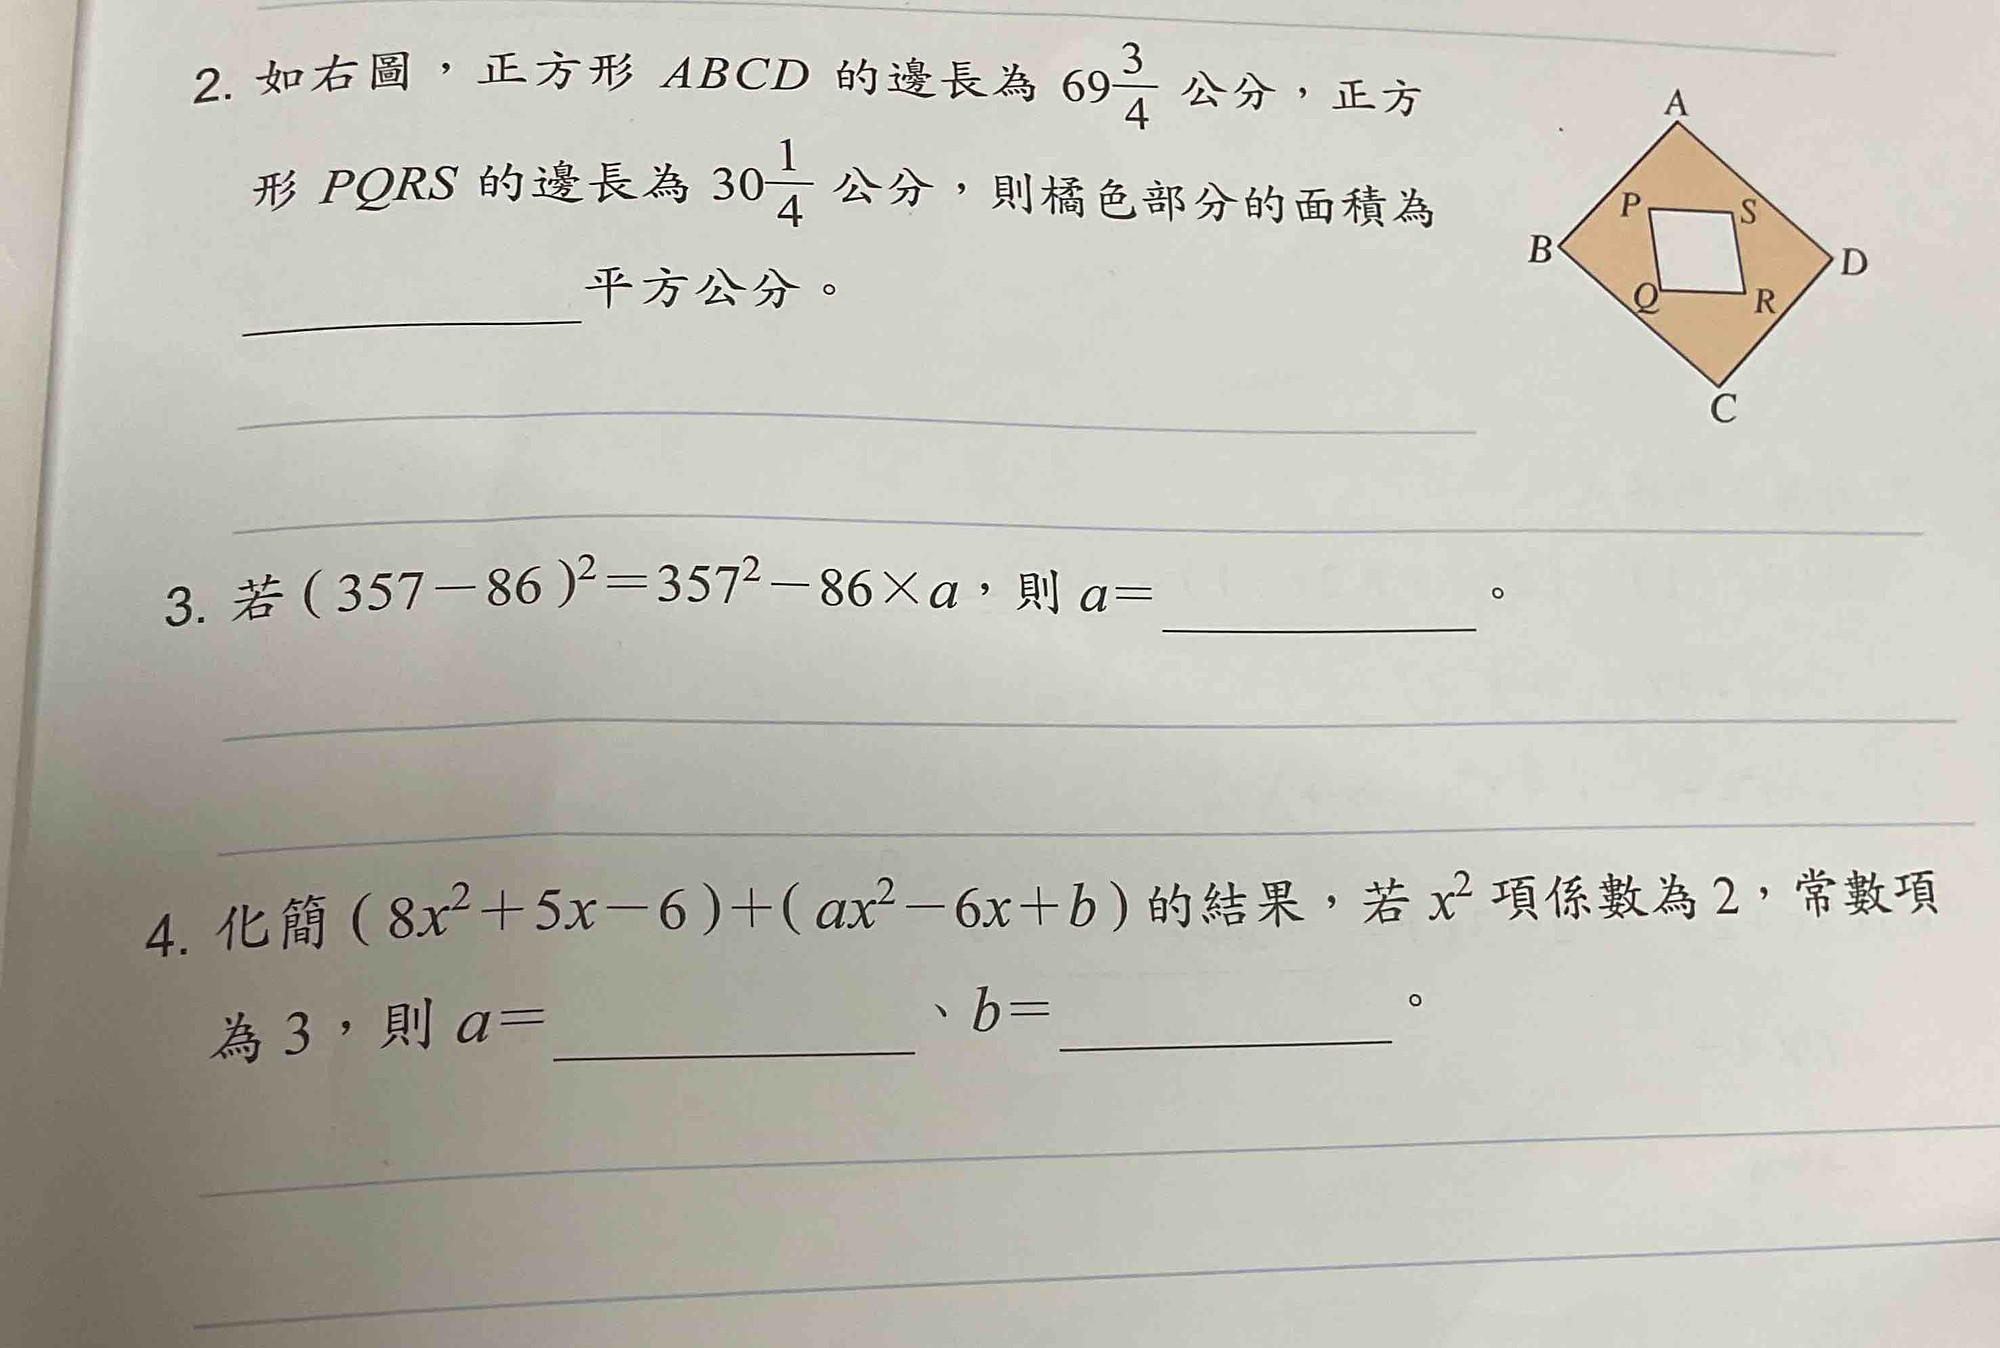 2. 如右圖，正方形 ABCD 的邊長為 69 3/4 公分，正方
形 PQRS 的邊長為 30 1/4 公分，則橘色部分的面積為
________平方公分。
A
P
S
B
D
Q
R
C
3. 若(357－86)²＝357²－86×a，則 a＝________。
4. 化簡(8x²＋5x－6)＋(ax²－6x＋b)的結果，若 x² 項係數為2，常數項
為3，則 a＝________、b＝________。